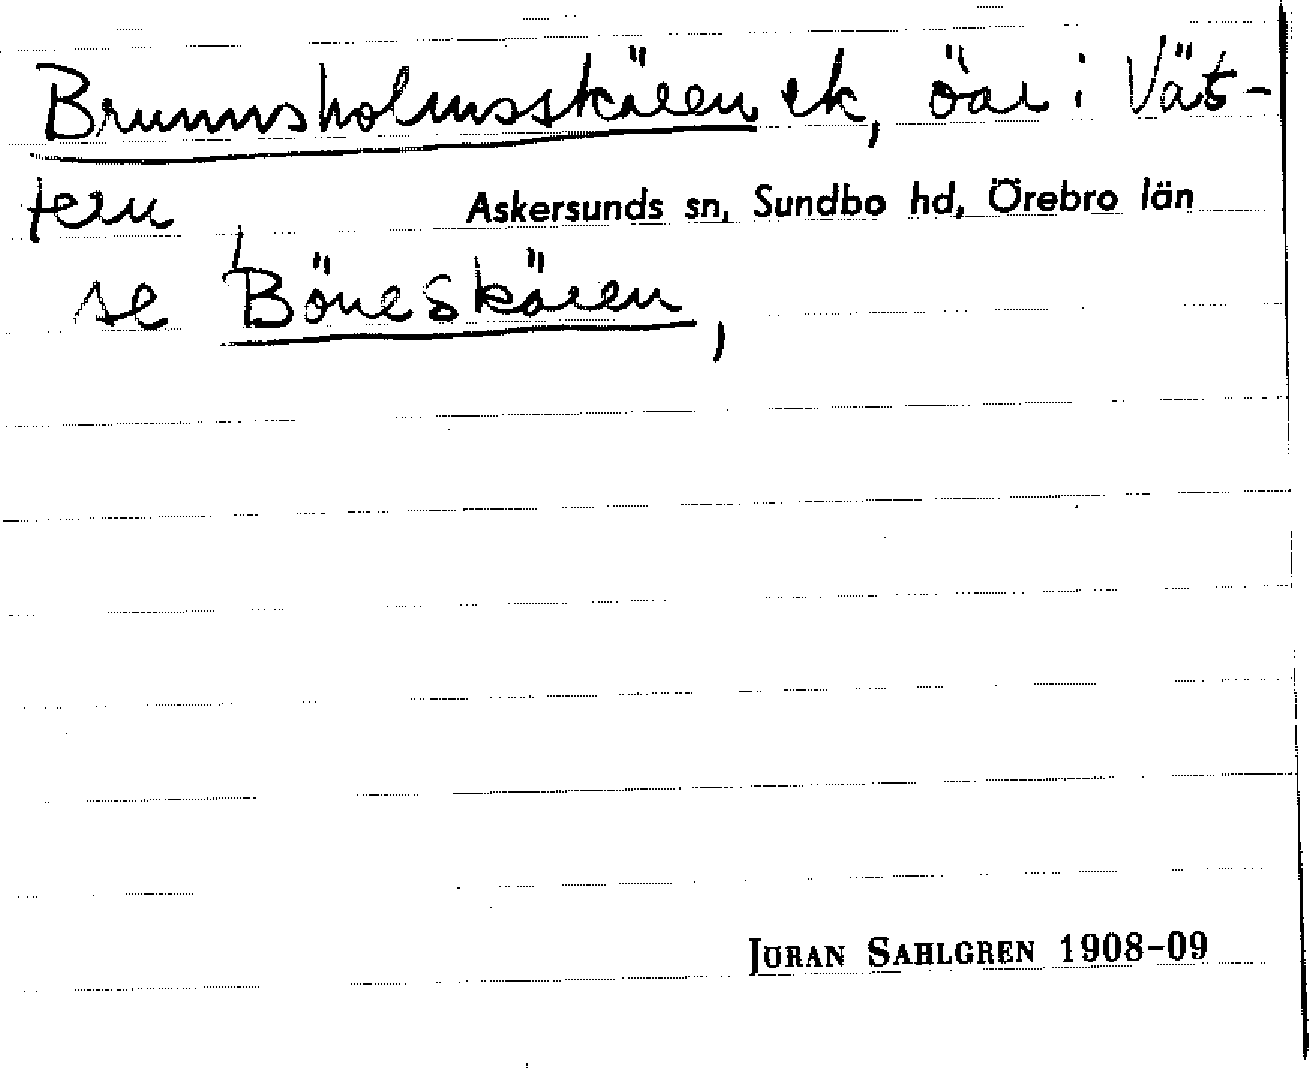 Brunnsholmsskären ek, öar i Vät-
tern Askersunds sn, Sundbo hd, Örebro län
se Böneskären,
JÖRAN SAHLGREN 1908-09